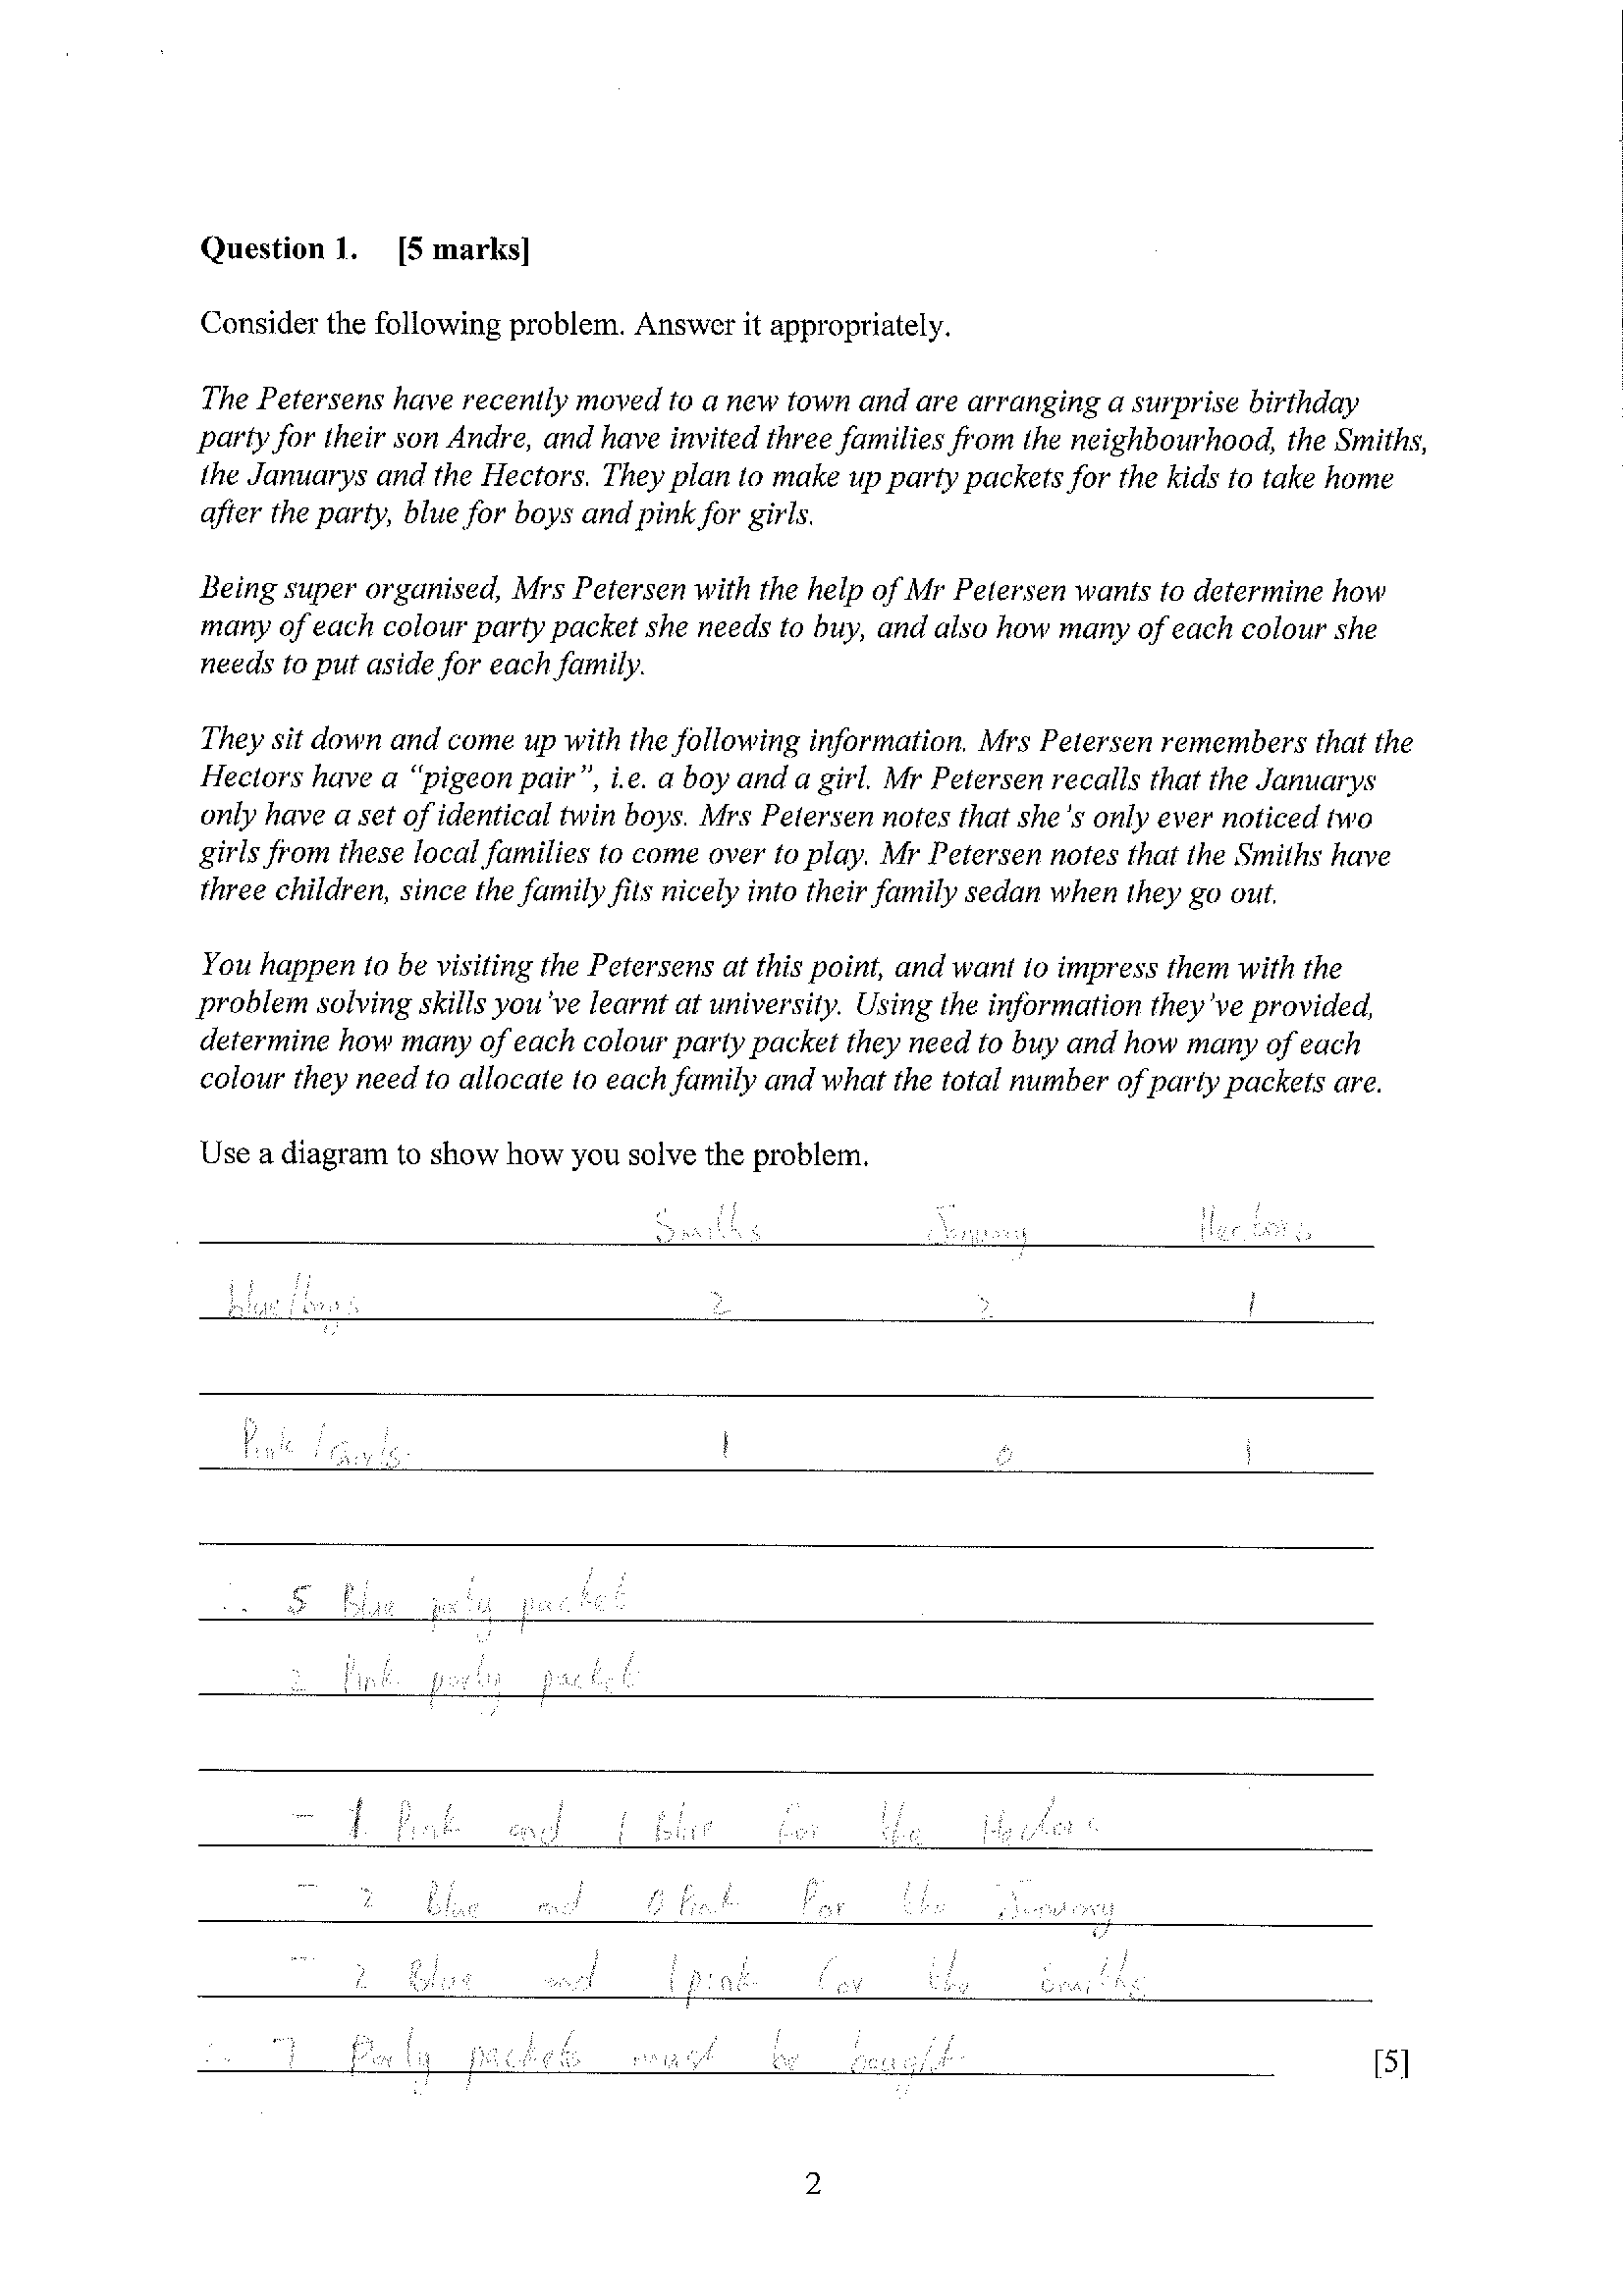 Question 1. [5 marks]
Consider the following problem. Answer it appropriately.
The Petersens have recently moved to a new town and are arranging a surprise birthday
party for their son Andre, and have invited three families from the neighbourhood, the Smiths,
the Januarys and the Hectors. They plan to make up party packets for the kids to take home
after the party, blue for boys and pink for girls.
Being super organised, Mrs Petersen with the help of Mr Petersen wants to determine how
many of each colour party packet she needs to buy, and also how many of each colour she
needs to put aside for each family.
They sit down and come up with the following information. Mrs Petersen remembers that the
Hectors have a “pigeon pair”, i.e. a boy and a girl. Mr Petersen recalls that the Januarys
only have a set of identical twin boys. Mrs Petersen notes that she's only ever noticed two
girls from these local families to come over to play. Mr Petersen notes that the Smiths have
three children, since the family fits nicely into their family sedan when they go out.
You happen to be visiting the Petersens at this point, and want to impress them with the
problem solving skills you've learnt at university. Using the information they've provided,
determine how many of each colour party packet they need to buy and how many of each
colour they need to allocate to each family and what the total number of party packets are.
Use a diagram to show how you solve the problem.
Smiths January Hectors
blue/boys 2 2 1
Pink/Girls 1 0 1
∴ 5 Blue party packet
2 Pink party packet
- 1 Pink and 1 Blue for the Hectors
- 2 Blue and 0 Pink for the January
- 2 Blue and 1 pink for the Smiths
∴ 7 Party packets must be bought.
[5]
2